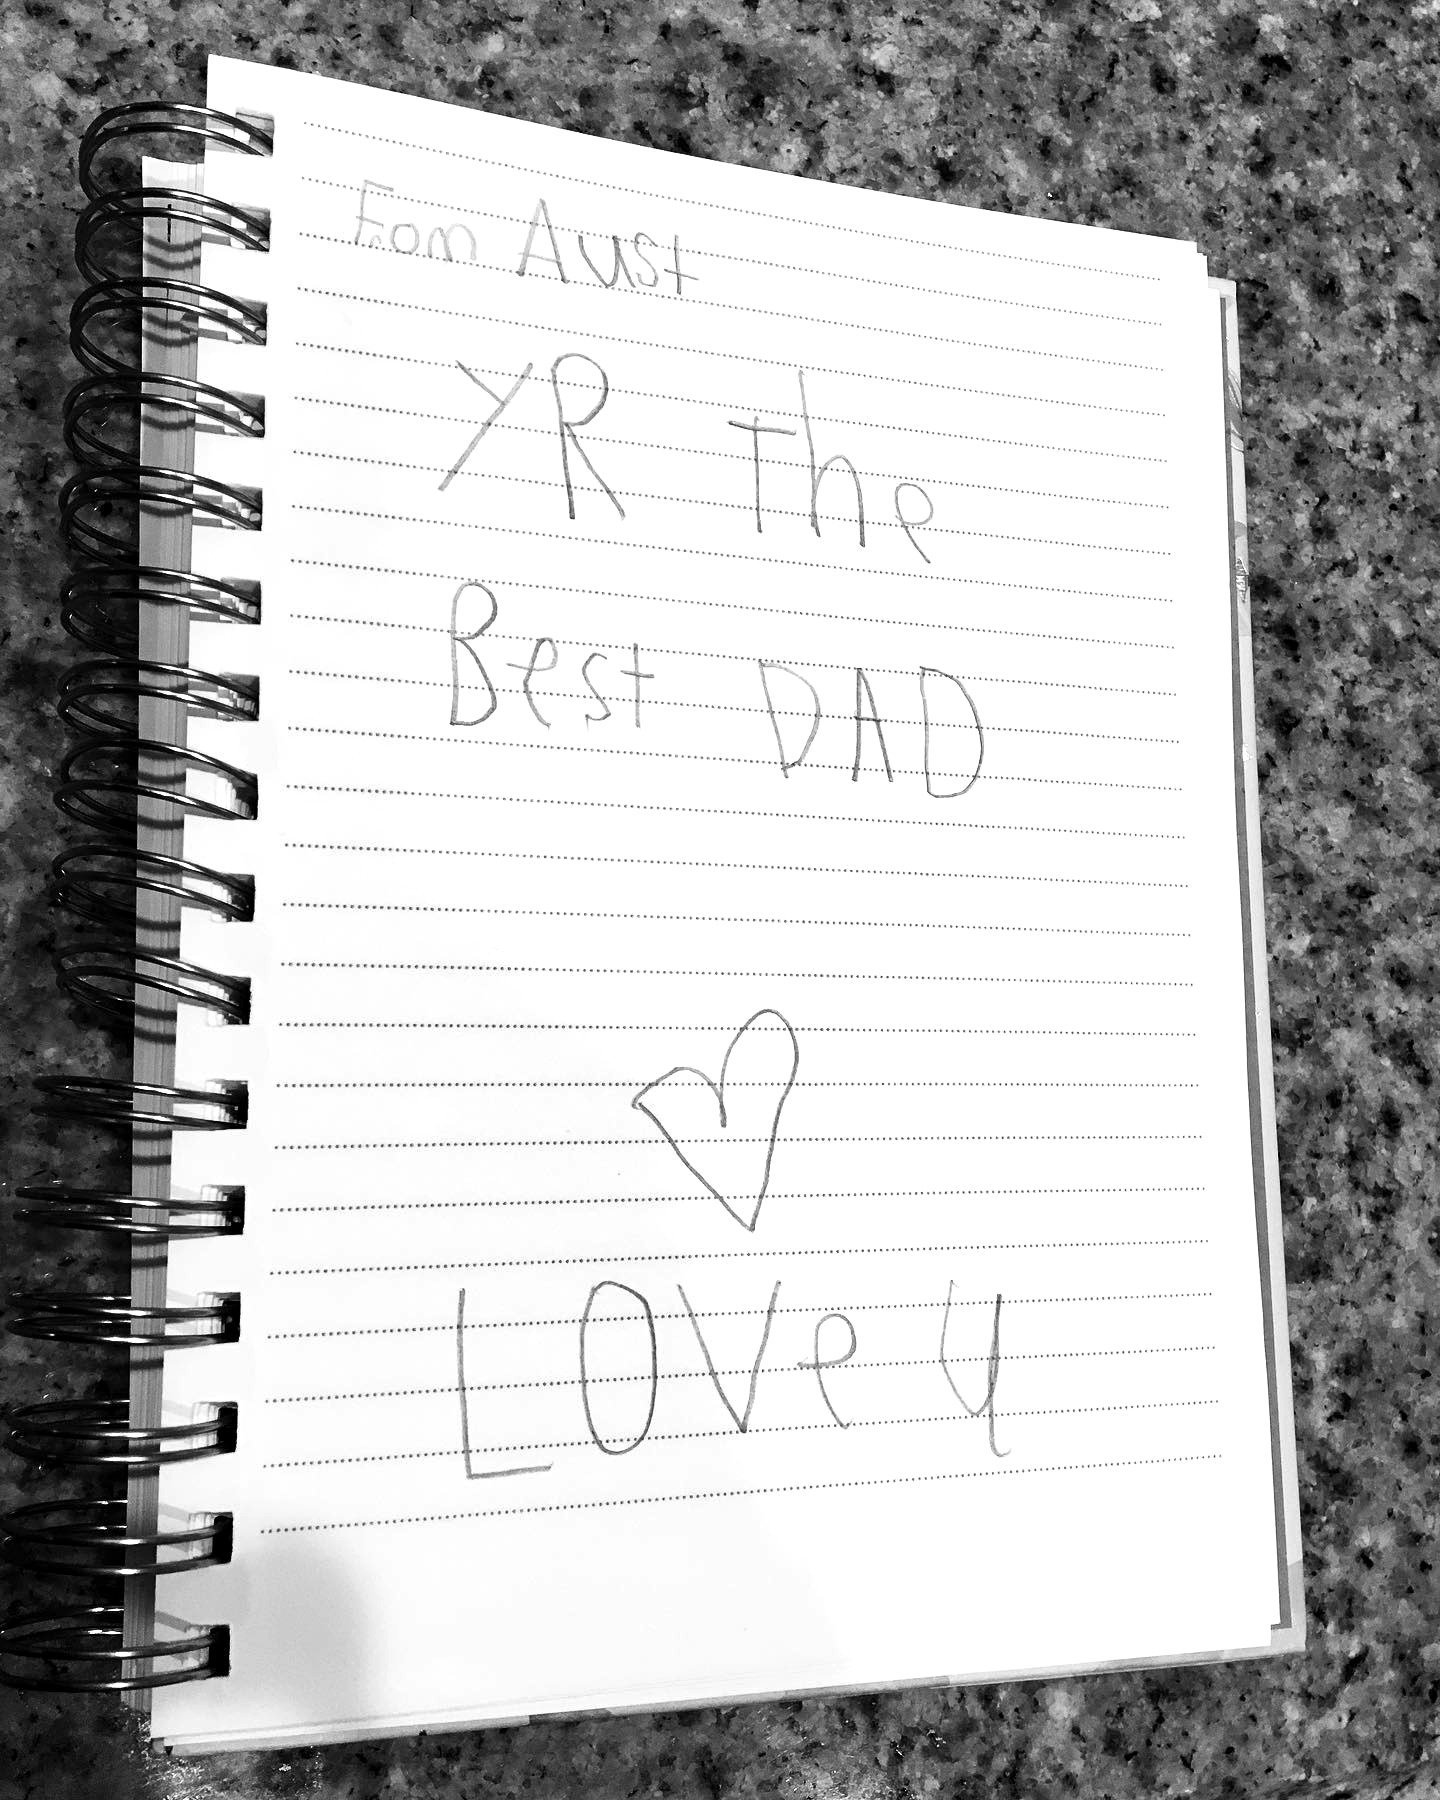 Fom Aust
YR the
Best DAD
LOVe y